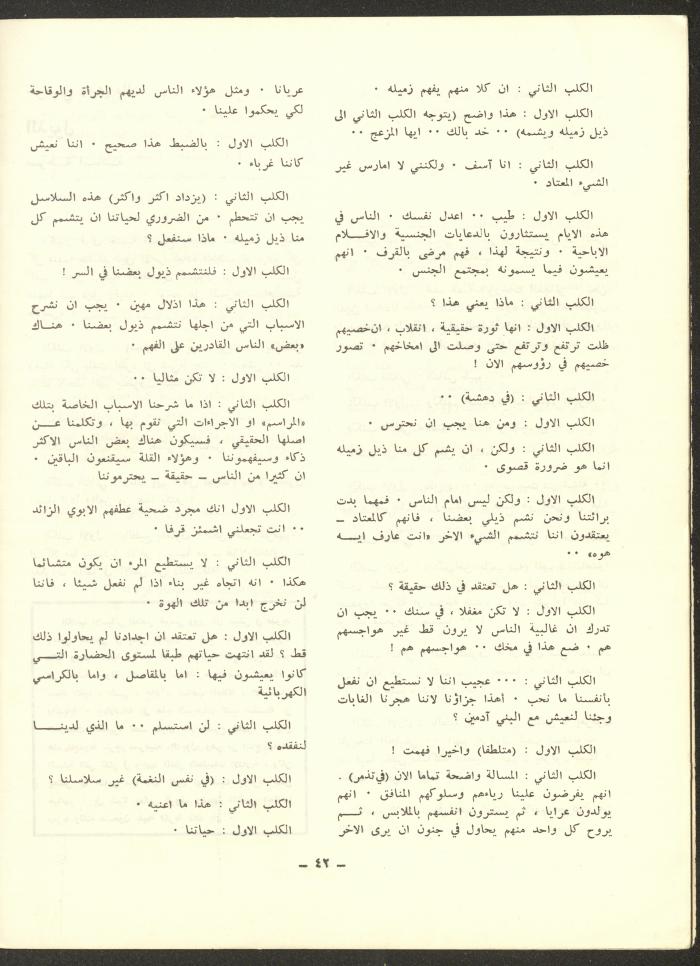 الكلب الثاني : ان كلا منهم يفهم زميله ٠
الكلب الاول : هذا واضح (يتوجه الكلب الثاني الى
ذيل زميله ويشمه) ٠٠ خد بالك ٠٠ ايها المزعج ٠٠
الكلب الثاني : انا آسف ٠ ولكنني لا امارس غير
الشيء المعتاد ٠
الكلب الاول : طيب ٠٠ اعدل نفسك ٠ الناس في
هذه الايام يستثارون بالدعايات الجنسية والافـــلام
الاباحية ٠ ونتيجة لهذا ، فهم مرضى بالقرف ٠ انهم
يعيشون فيما يسمونه بمجتمع الجنس ٠
الكلب الثاني : ماذا يعني هذا ؟
الكلب الاول : انها ثورة حقيقية ، انقلاب ، ان خصيهم
ظلت ترتفع وترتفع حتى وصلت الى امخاخهم ٠ تصور
خصيهم في رؤوسهم الان !
الكلب الثاني : (في دهشة) ٠٠
الكلب الاول : ومن هنا يجب ان نحترس ٠
الكلب الثاني : ولكن ، ان يشم كل منا ذيل زميله
انما هو ضرورة قصوى ٠
الكلب الاول : ولكن ليس امام الناس ٠ فمهما بدت
برائتنا ونحن نشم ذيلي بعضنا ، فانهم كالمعتاد ــ
يعتقدون اننا نتشمم الشيء الاخر «انت عارف ايـــه
هوه» ٠٠
الكلب الثاني : هل تعتقد في ذلك حقيقة ؟
الكلب الاول : لا تكن مغفلا ، في سنك ٠٠ يجب ان
تدرك ان غالبية الناس لا يرون قط غير هواجسهم
هم ٠ ضع هذا في مخك ٠٠ هواجسهم هم !
الكلب الثاني : ٠٠٠ عجيب اننا لا نستطيع ان نفعل
بأنفسنا ما نحب ٠ أهذا جزاؤنا لاننا هجرنا الغابات
وجئنا لنعيش مع البني آدمين ؟
الكلب الاول : (متلطفا) واخيرا فهمت !
الكلب الثاني : المسالة واضحة تماما الان (في تذمر) .
انهم يفرضون علينا رياءهم وسلوكهم المنافق ٠ انهم
يولدون عرايا ، ثم يسترون انفسهم بالملابس ، ثـــم
يروح كل واحد منهم يحاول في جنون ان يرى الاخر
عريانا ٠ ومثل هؤلاء الناس لديهم الجرأة والوقاحة
لكي يحكموا علينا ٠
الكلب الاول : بالضبط هذا صحيح ٠ اننا نعيش
كاننا غرباء ٠
الكلب الثاني : (يزداد اكثر واكثر) هذه السلاسل
يجب ان تتحطم ٠ من الضروري لحياتنا ان يتشمم كل
منا ذيل زميله ٠ ماذا سنفعل ؟
الكلب الاول : فلنتشمم ذيول بعضنا في السر !
الكلب الثاني : هذا اذلال مهين ٠ يجب ان نشرح
الاسباب التي من اجلها نتشمم ذيول بعضنا ٠ هنــاك
«بعض» الناس القادرين على الفهم ٠
الكلب الاول : لا تكن مثاليا ٠٠
الكلب الثاني : اذا ما شرحنا الاسباب الخاصة بتلك
«المراسم» او الاجراءات التي نقوم بها ، وتكلمنا عـــن
اصلها الحقيقي ، فسيكون هناك بعض الناس الاكثر
ذكاء وسيفهموننا ٠ وهؤلاء القلة سيقنعون الباقين ٠
ان كثيرا من الناس ــ حقيقة ــ يحترموننا
الكلب الاول انك مجرد ضحية عطفهم الابوي الزائد
٠٠ انت تجعلني اشمئز قرفا ٠
الكلب الثاني : لا يستطيع المرء ان يكون متشائما
هكذا ٠ انه اتجاه غير بناء اذا لم نفعل شيئا ، فاننا
لن نخرج ابدا من تلك الهوة ٠
الكلب الاول : هل تعتقد ان اجدادنا لم يحاولوا ذلك
قط ؟ لقد انتهت حياتهم طبقا لمستوى الحضارة التـــي
كانوا يعيشون فيها : اما بالمقاصل ، واما بالكراسي
الكهربائية
الكلب الثاني : لن استسلم ٠٠ ما الذي لدينـــــا
لنفقده ؟
الكلب الاول : (في نفس النغمة) غير سلاسلنا ؟
الكلب الثاني : هذا ما اعنيه ٠
الكلب الاول : حياتنا ٠
ــ ٤٢ ــ